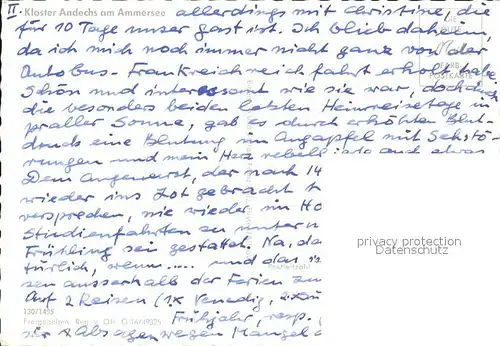 II.
Kloster Andechs am Ammersee
allerdings mit Christine, die
für 10 Tage unser Gast ist. Ich blieb daheim,
da ich mich noch immer nicht ganz von der
Autobus-Frankreichreich fahrt erholt habe
Schön und interessant wie sie war, doch durch
die besonders beiden letzten Heimreisetage in
praller Sonne, gab es durch erhöhten Blut-
drucks eine Blutung im Augapfel mit Sehstö-
rungen und mein Herz rebellierte auch etwas
Dem Augenarzt, der nach 14
wieder ins Lot gebracht
versprechen, nie wieder im
Studienfahrten zu
Frühling sei gestattet. Na, da
türlich, wenn .... und das
sen ausserhalb der Ferien
Auf 2 Reisen (1x Venedig,
Frühjahr, resp.
Absagen wegen Mangel
privacy protection
Datenschutz
POSTKARTE
130/1435
Freigegeben: Reg. v. Obb. G 16/49325